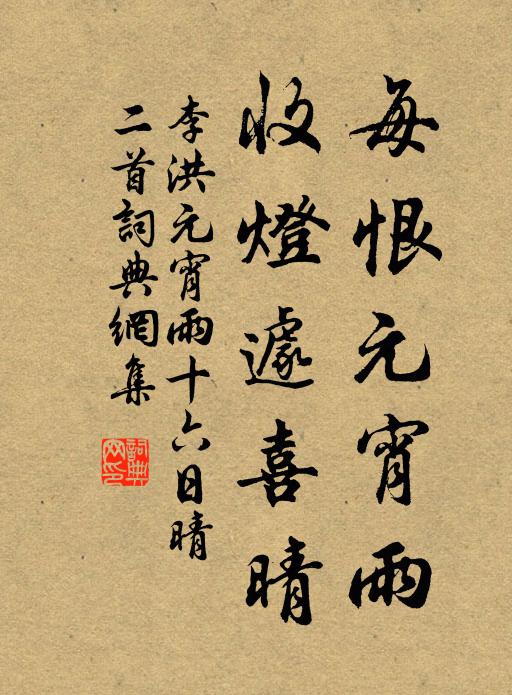 每恨元宵雨
收燈遽喜晴
李洪元宵雨十六日晴
二首詞典網集
詞典網印